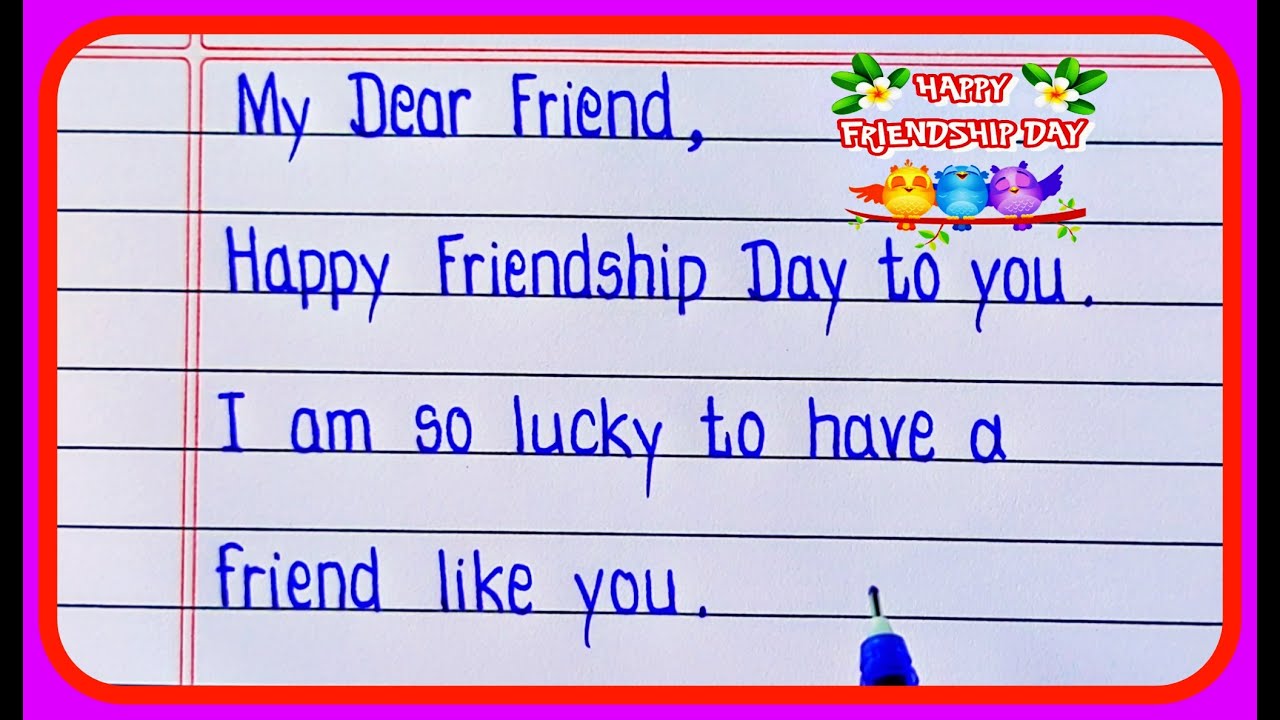 My Dear Friend,
HAPPY
FRIENDSHIP DAY
Happy Friendship Day to you.
I am so lucky to have a
friend like you.